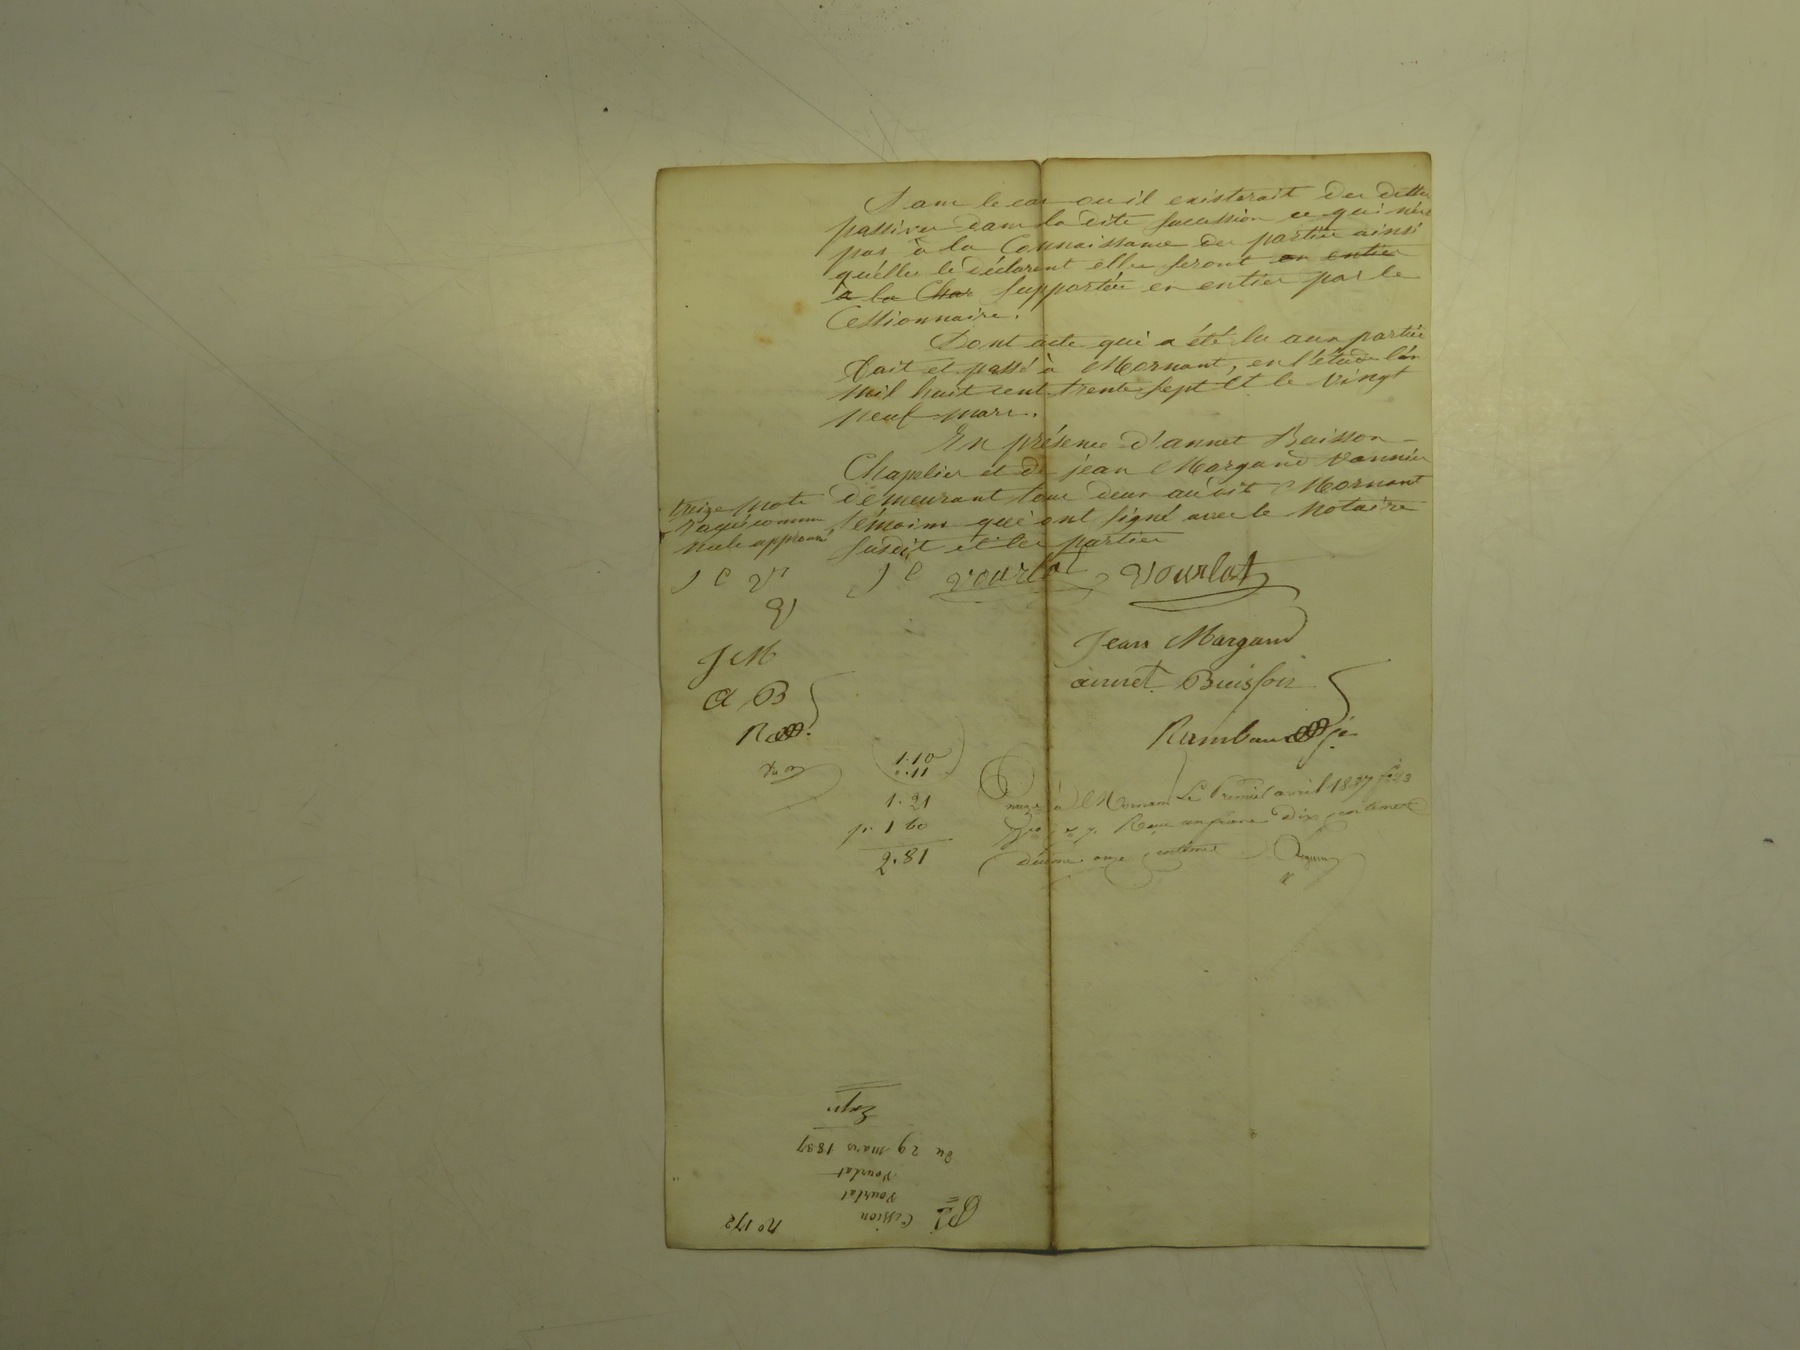 Dans le cas ou il existerait des dettes
passives dans la dite succession ce qui n'est
pas à la Connaissance des parties ainsi
qu'elles le déclarent elles seront en entier
à la Char supportées en entier par le
Cessionnaire.
Dont acte qui a été lu aux parties
Fait et passé à Mornant, en l'étude l'an
mil huit cent trente sept Et le Vingt
neuf mars.
En présence d'annet Buisson
Chapelier et de jean Margand Vannier
demeurant tous deux au dit Mornant
témoins qui ont signé avec le Notaire
susdit et les parties
treize mots
rayés comme
nuls approuvés
J C Vourlat Vourlat
J C V
V
Jean Margand
J M
annet Buisson
A B
Rambaud
R
1.10
0.11
1.21
p. 1 60
2.81
à Mornant Le Premier avril 1837
Reçu un franc Dix centimes
décime onze centimes
Exp.
du 29 mars 1837
Vourlat
Vourlat
Cession
nº 172